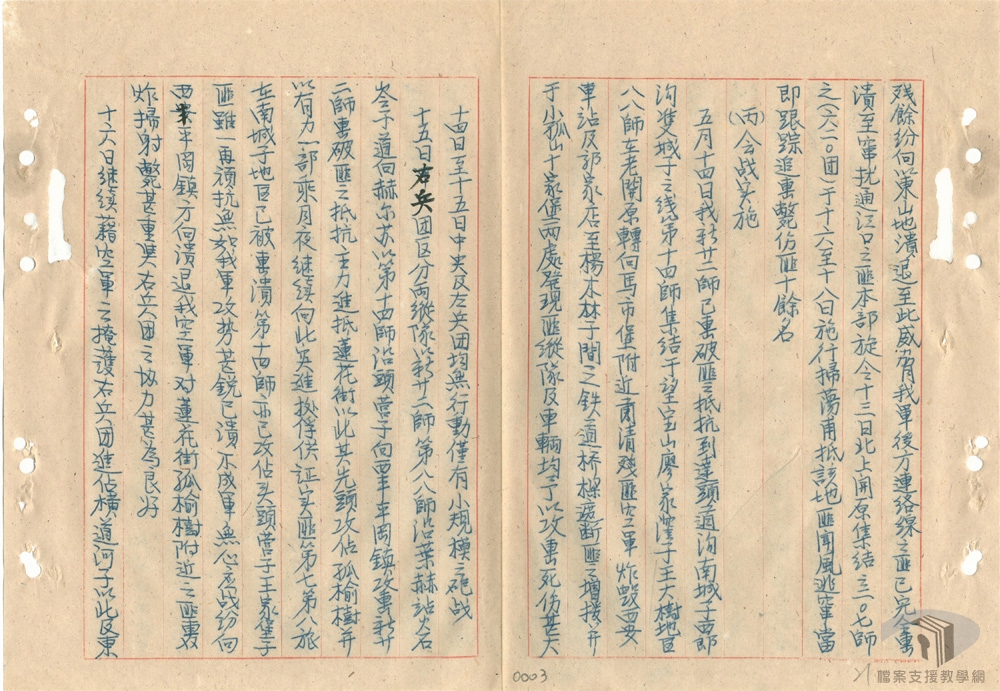 殘餘紛向以東山地潰退至此威脅我軍後方連絡線之匪已完全擊
潰至竄擾通江口之匪本部旋令十三日北上開原集結之二〇七師
之(六二〇團)于十六至十八日施行掃蕩甫抵該地匪聞風逃竄當
即跟踪追擊斃傷匪十餘名
(丙)会战实施
五月十四日我新廿二師已擊破匪之抵抗到達頭道沟南城子西即
沟双城子之线第十四師集结于望宝山廖家窪子王大樹地区
八八師在老開原轉向馬市堡附近肅清殘匪空軍炸毀四
車站及郭家店至楊木林子間之鉄道桥樑遮断匪之增援并
于小孤山十家堡两處發現匪縱隊及車輛均予以攻擊死伤甚大
十四日至十五日中央及左兵团均無行動僅有小規模之砲战
十五日右兵团区分两縱隊以新廿二師第八八師沿葉赫站火石
岺下道向赫尔苏以第十四師沿頭營子向西半平岡鎮攻擊新廿
二師擊破匪之抵抗主力進抵蓮花街以北其先頭攻佔孤榆樹并
以有力一部乘月夜继续向北突進按俘供证实匪第七第八旅
在南城子地区已被擊潰第十四師亦已攻佔头頭营子王家堡子
匪雖一再頑抗無如我軍攻势甚銳已潰不成軍無心恋战纷向
西平岡鎮方向潰退我空軍对蓮花街孤榆樹附近之匪轰
炸掃射斃甚重與右兵团之协力甚為良好
十六日继续藉空軍之掩護右兵团進佔横道河子以北及東
0003
檔案支援教學網